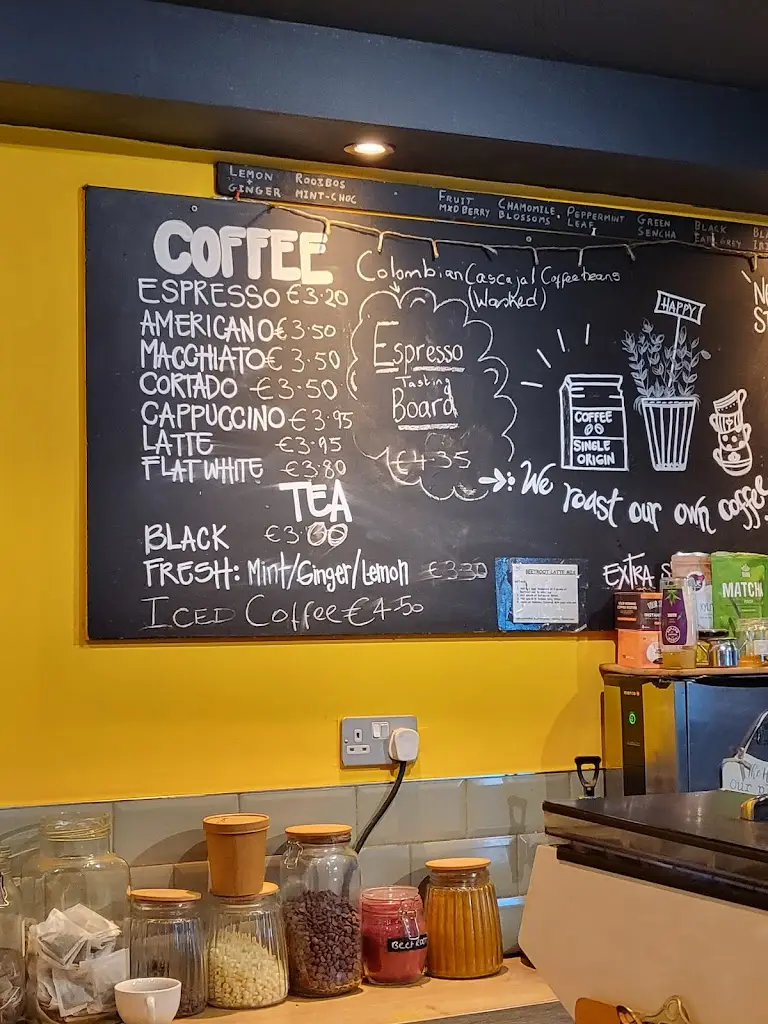 LEMON + GINGER
ROOIBOS MINT-CHOC
FRUIT MXD BERRY
CHAMOMILE BLOSSOMS
PEPPERMINT LEAF
GREEN SENCHA
BLACK EARL GREY
COFFEE
ESPRESSO €3.20
AMERICANO €3.50
MACCHIATO €3.50
CORTADO €3.50
CAPPUCCINO €3.95
LATTE €3.95
FLAT WHITE €3.80
TEA
BLACK
FRESH: Mint/Ginger/Lemon €3.30
ICED Coffee €4.50
Colombian Cascajal Coffee beans
(Washed)
Espresso
Tasting
Board
€4.35
HAPPY
COFFEE
SINGLE
ORIGIN
We roast our own coffee
EXTRA
BEETROOT LATTE MIX
MATCHA
BEETROOT